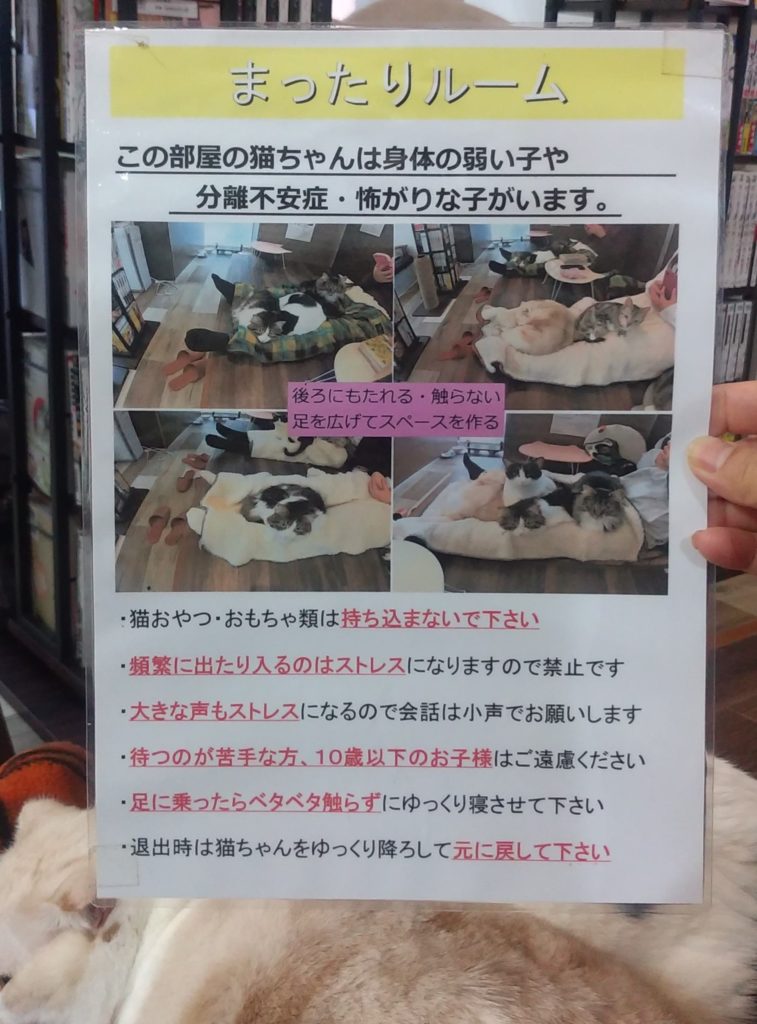 まったりルーム
この部屋の猫ちゃんは身体の弱い子や
分離不安症・怖がりな子がいます。
後ろにもたれる・触らない
足を広げてスペースを作る
・猫おやつ・おもちゃ類は持ち込まないで下さい
・頻繁に出たり入るのはストレスになりますので禁止です
・大きな声もストレスになるので会話は小声でお願いします
・待つのが苦手な方、10歳以下のお子様はご遠慮ください
・足に乗ったらベタベタ触らずにゆっくり寝させて下さい
・退出時は猫ちゃんをゆっくり降ろして元に戻して下さい